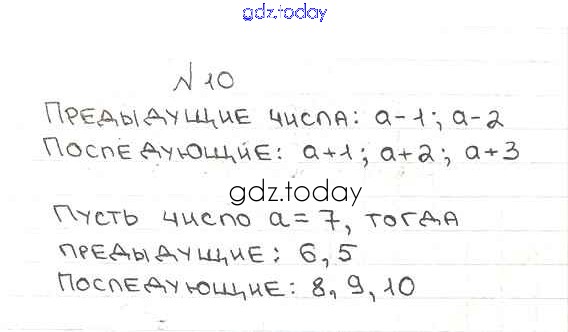 gdz.today
№10
Предыдущие числа: a-1; a-2
Последующие: a+1; a+2; a+3
gdz.today
Пусть число a=7, тогда
предыдущие: 6, 5
Последующие: 8, 9, 10